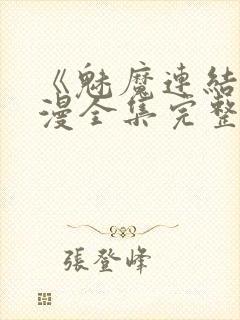 《魅魔連結
漫全集完整
張登峰